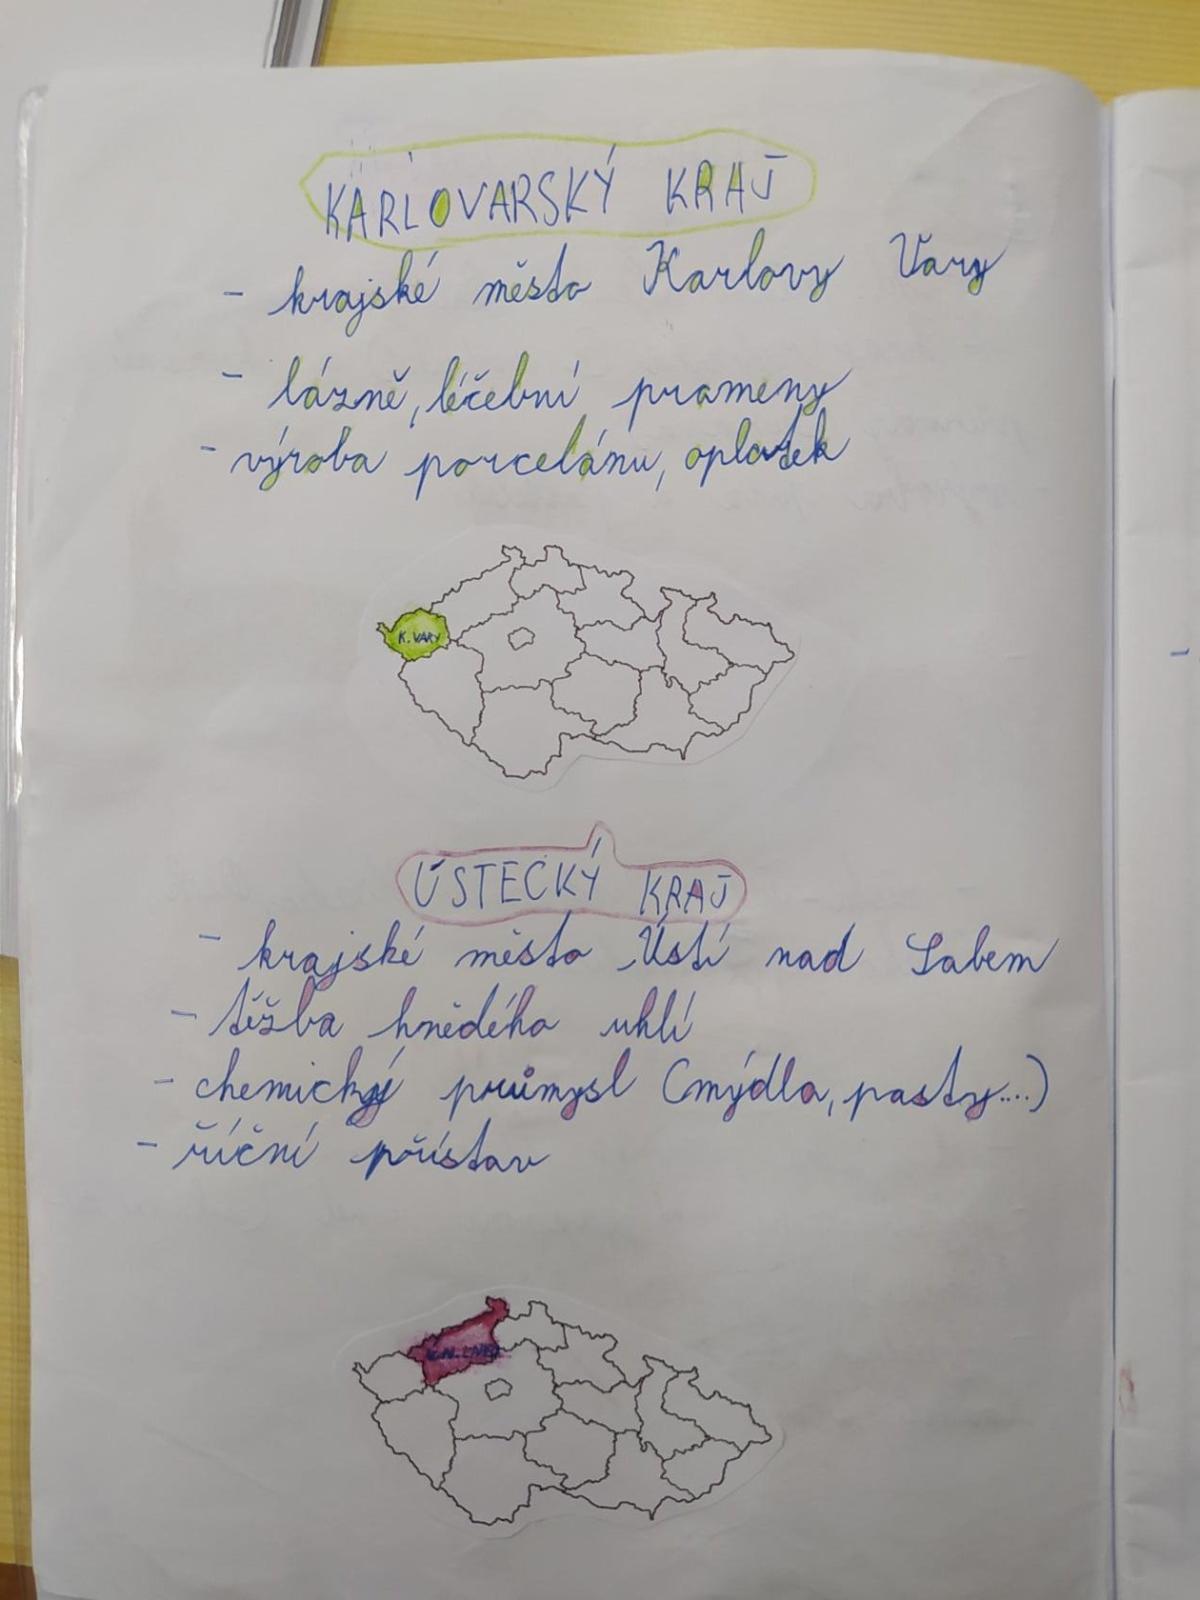 KARLOVARSKÝ KRAJ
- krajské město Karlovy Vary
- lázně, léčební prameny
- výroba porcelánu, oplatek
K. VARY
ÚSTECKÝ KRAJ
- krajské město Ústí nad Labem
- těžba hnědého uhlí
- chemický průmysl (mýdla, pasty....)
- říční přístav